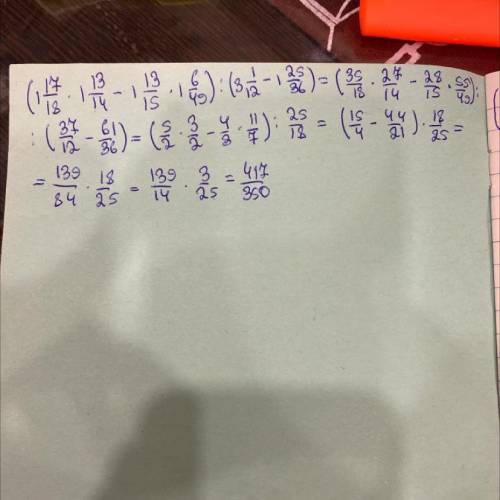 (1 17/18 · 1 13/14 - 1 13/15 · 1 6/49) : (3 1/12 - 1 25/36) = (35/18 · 27/14 - 28/15 · 55/49) :
: (37/12 - 61/36) = (5/2 · 3/2 - 4/3 · 11/7) : 25/18 = (15/4 - 44/21) · 18/25 =
= 139/84 · 18/25 = 139/14 · 3/25 = 417/350